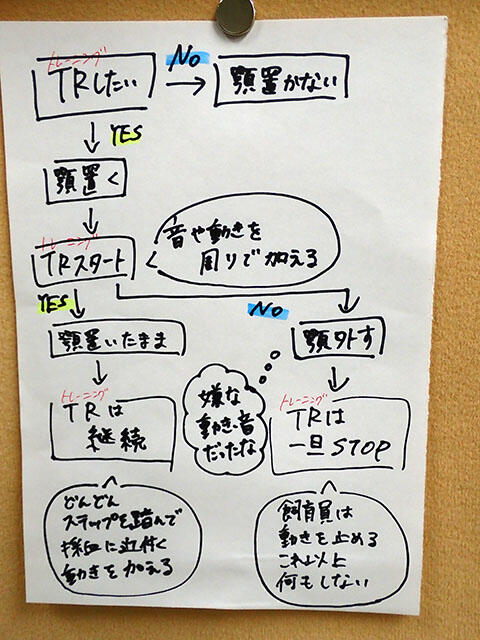 トレーニング
TRしたい
NO
顎置かない
YES
顎置く
トレーニング
TRスタート
音や動きを
周りで加える
YES
NO
顎置いたまま
顎外す
トレーニング
TRは
継続
嫌な
動き・音
だったな
トレーニング
TRは
一旦STOP
どんどん
ステップを踏んで
採血に近付く
動きを加える
飼育員は
動きを止める
これ以上
何もしない